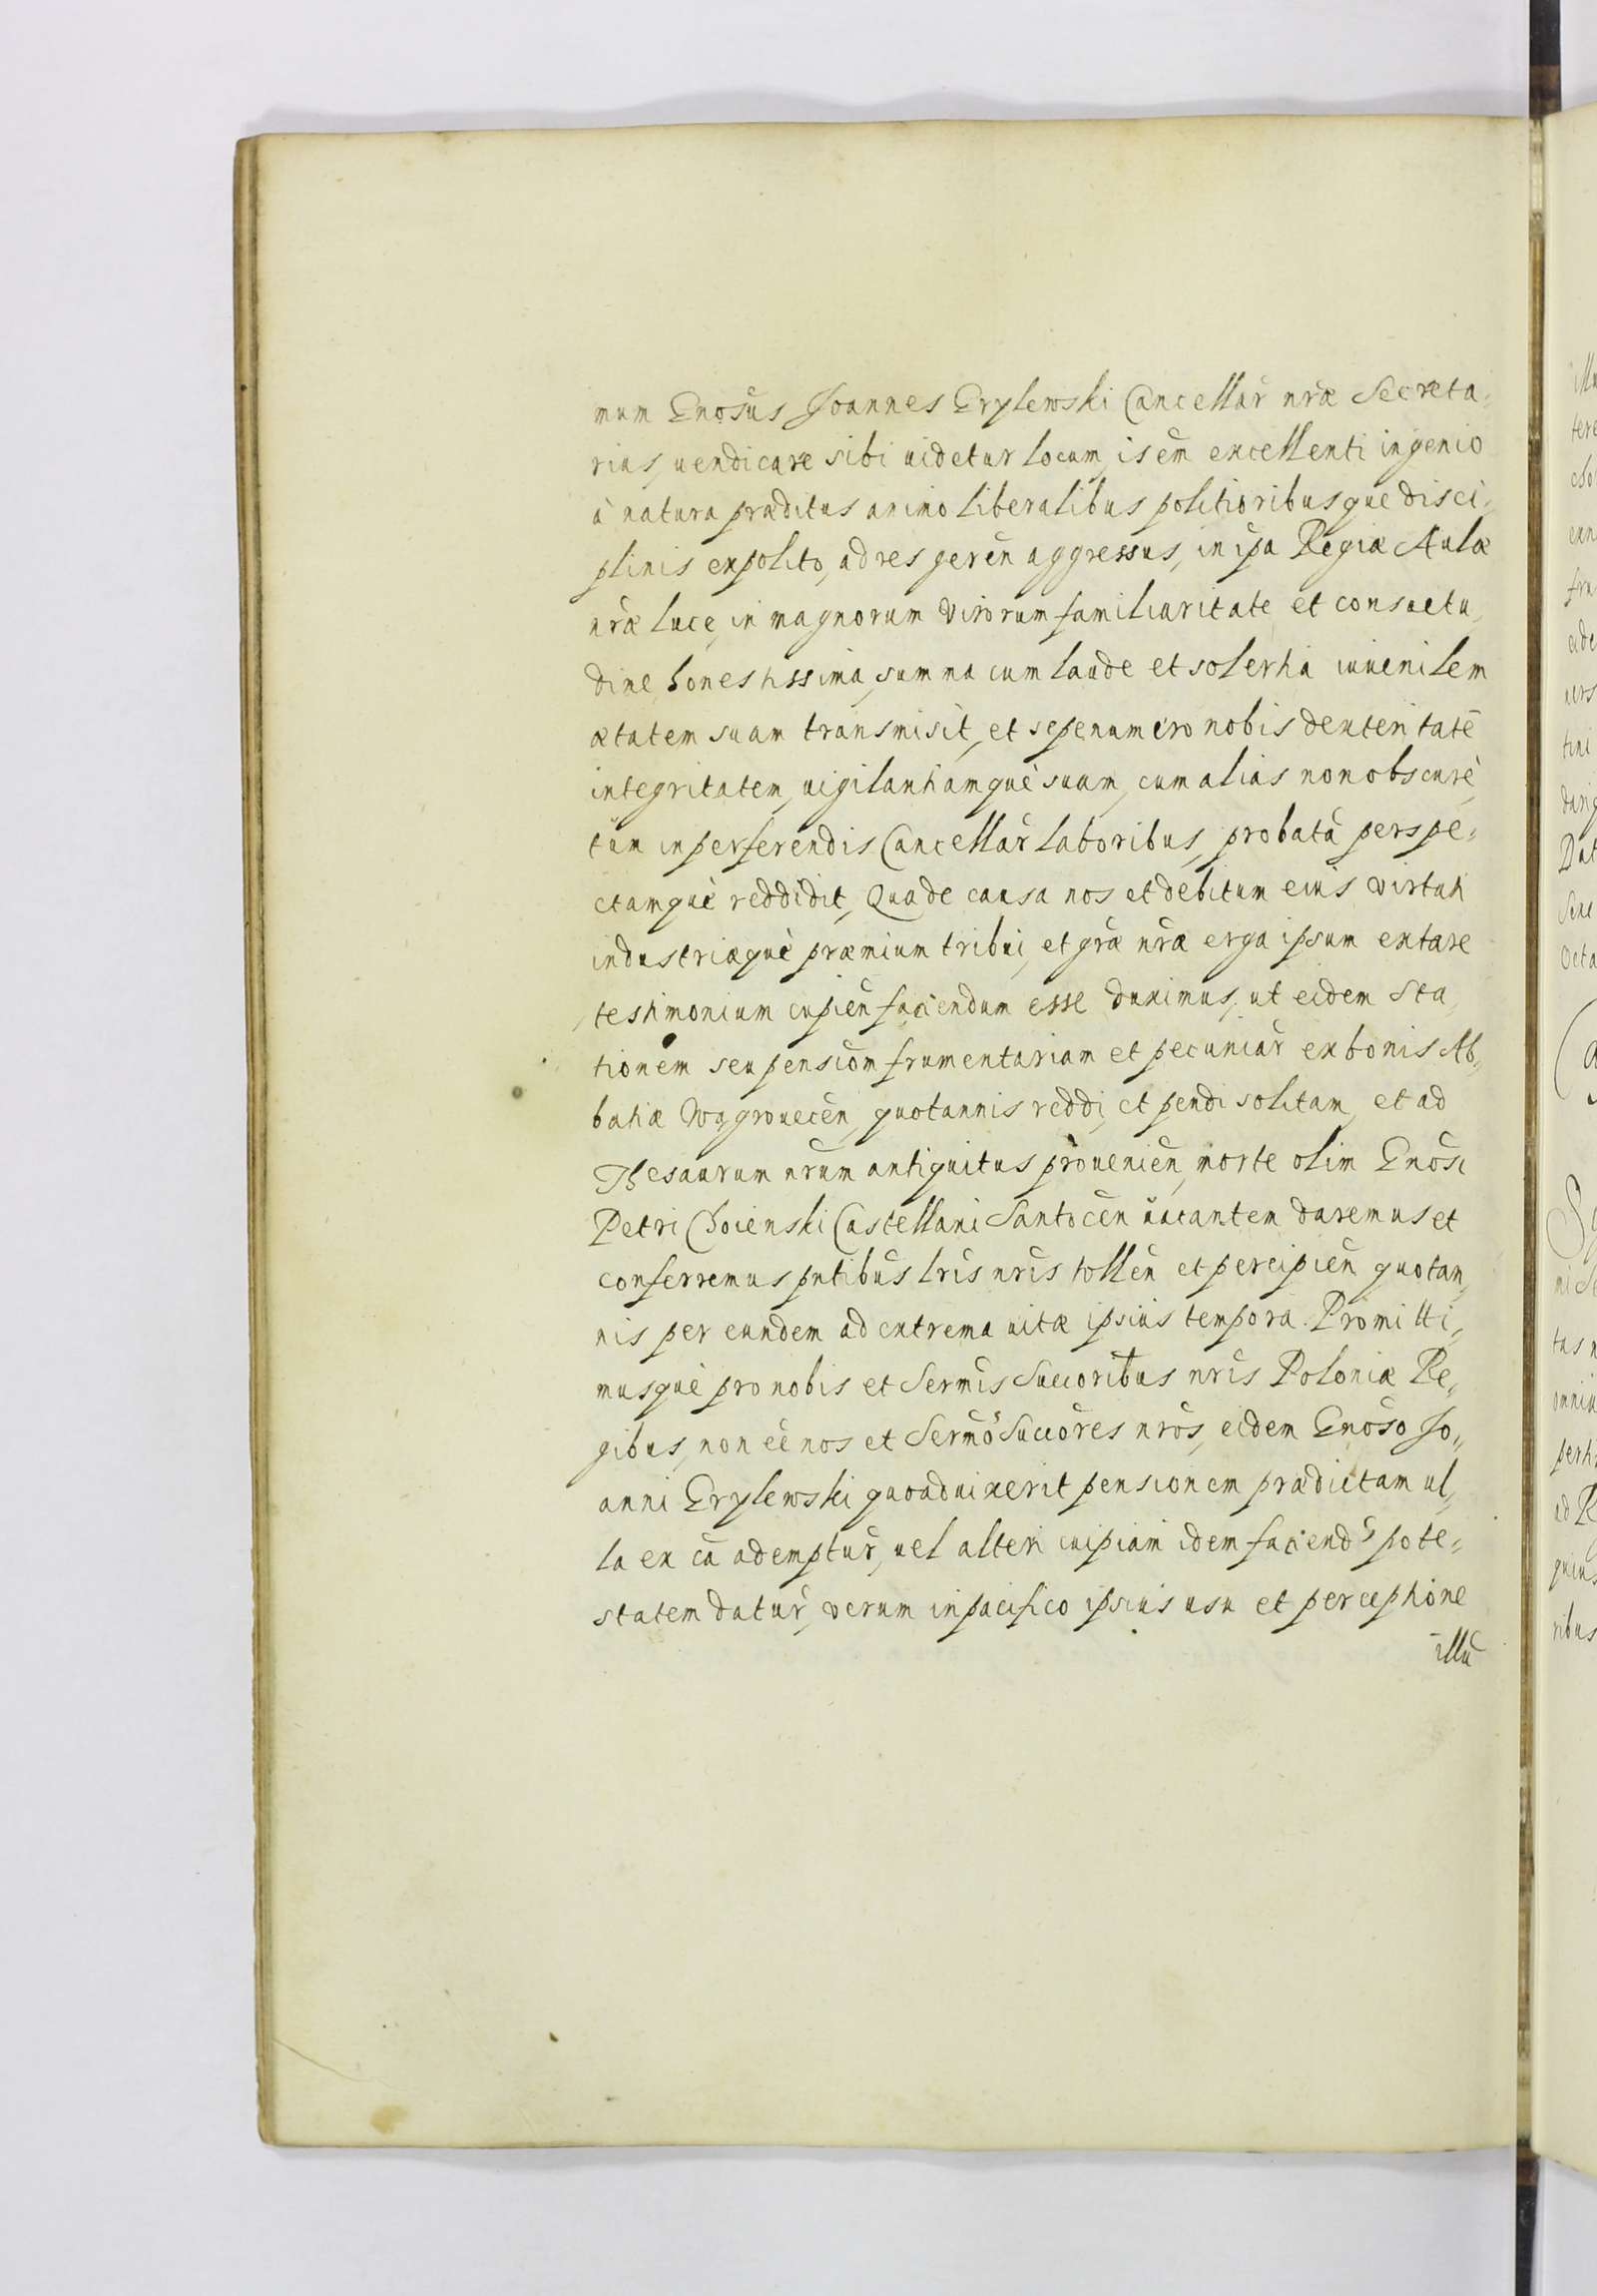 mum Gnosus Joannes Grylewski Cancellar nræ Secreta-
rius, uendicare sibi uidetur locum, is em excellenti ingenio
à natura præditus animo liberalibus politioribusque disci-
plinis expolito, ad res geren aggressus, in ipa Regiæ Aulæ
nræ luce, in magnorum virorum familiaritate et consuetu-
dine honestissima, summa cum laude et solertia iuuenilem
ætatem suam transmisit, et sepenumero nobis dexteritatē
integritatem, uigilantiamquè suam, cum alias non obscurè,
tūm in perferendis Cancellar laboribus, probatā perspe-
ctamquè reddidit, Qua de causa nos et debitum eius virtuti
industriæquè præmium tribui, et græ nræ erga ipsum extare
testimonium cupien faciendum esse duximus, ut eidem sta-
tionem seu pensiom frumentariam et pecuniar ex bonis Ab-
batiæ Wagrouecen, quotannis reddi, et pendi solitam, et ad
Thesaurum nrum antiquitus prouenien, morte olim Gnosi
Petri Choienski Castellani Santocen uacantem daremus et
conferremus pntibus lris nris tollen et percipien quotan-
nis per eundem ad extrema uitæ ipsius tempora. Promitti-
musquè pro nobis et Sermis Succoribus nris Poloniæ Re-
gibus, non eē nos et Sermos Succores nros, eidem Gnoso Jo-
anni Grylewski quoad uixerit pensionem prædictam ul-
la ex cā adempturˢ, uel alteri cuipiam idem faciendˢ pote-
statem daturˢ, verum in pacifico ipsius usu et perceptione
illū